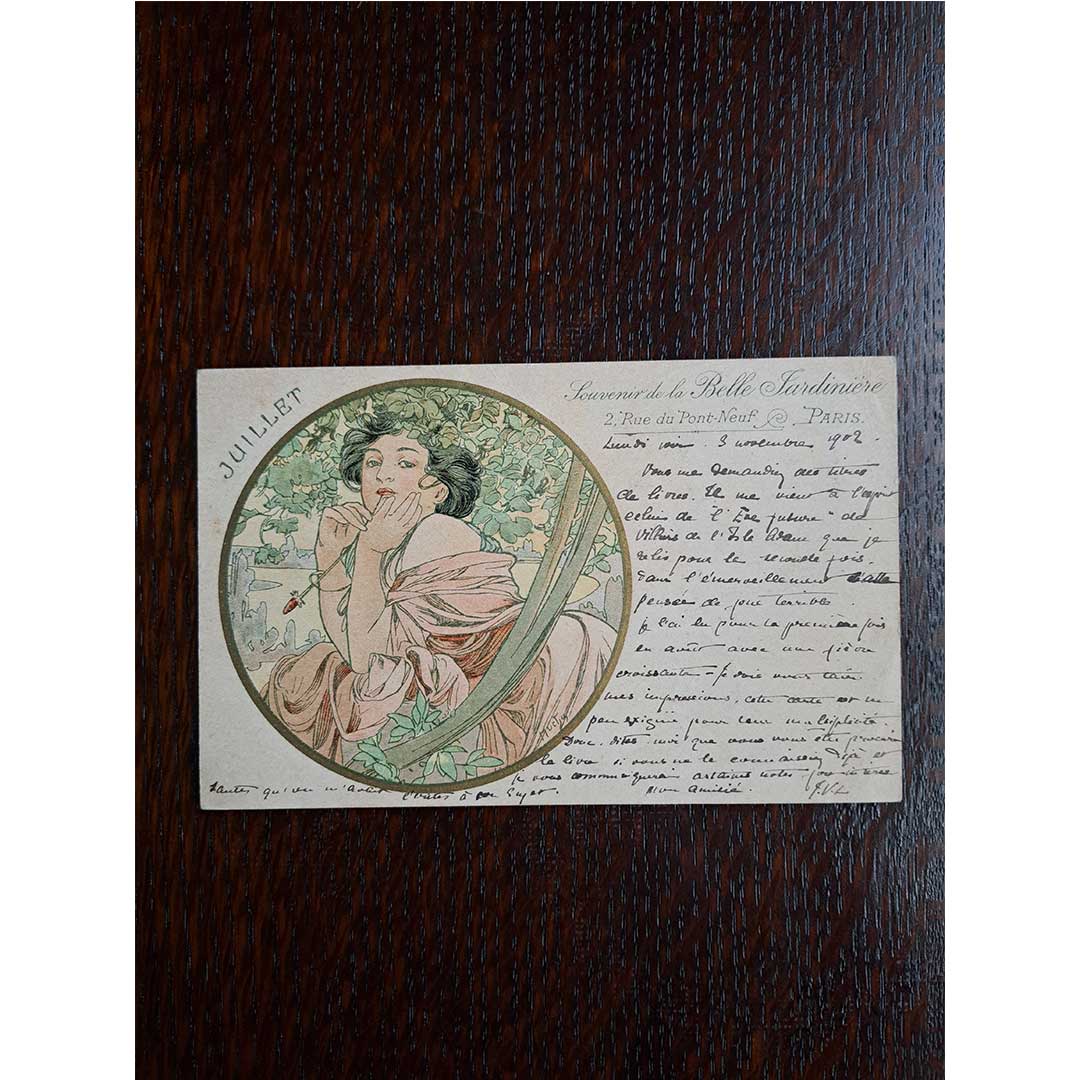 JUILLET
Souvenir de la Belle Jardinière
2, Rue du Pont-Neuf PARIS.
Lundi soir. 3 novembre 1902.
Vous me demandiez des titres
de livres. Il me vient à l'esprit
celui de l'"Eve future" de
Villiers de l'Isle Adam que je
relis pour la seconde fois.
dans l'émerveillement
pensée de joie terrible.
je l'ai lu pour la première fois
en août avec une fièvre
croissante - je dois vous taire
mes impressions, cette carte est un
peu exigüe pour leur multiplicité.
Donc, dites-moi que vous vous êtes procuré
le livre si vous ne le connaissiez déjà et
je vous communiquerai certaines notes
qu'on m'a à son sujet. Mon amitié. J.V.L
Mucha